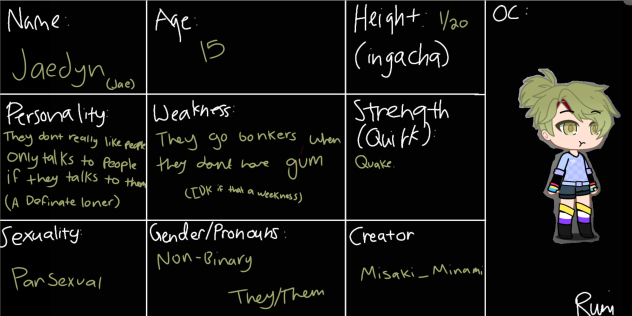 Name:
Jaedyn (Jae)
Age:
15
Height: 1/20
(ingacha)
OC:
Personality:
They dont really like people
only talks to people
if they talks to them
(A Definate loner)
Weakness:
They go bonkers when
they dont have gum
(IDK if that a weakness)
Strength
(Quirk):
Quake.
Sexuality:
Pansexual
Gender/Pronouns:
Non-Binary
They/Them
Creator
Misaki_Minami